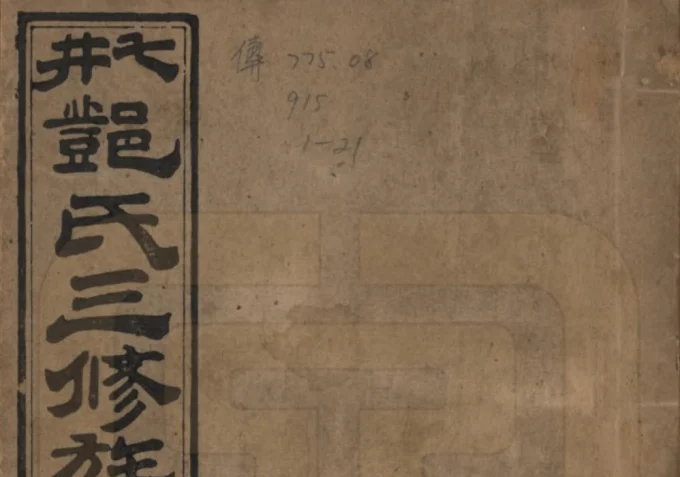 七井
鄧
氏
三
修
族
傳 775.08
915
1-21